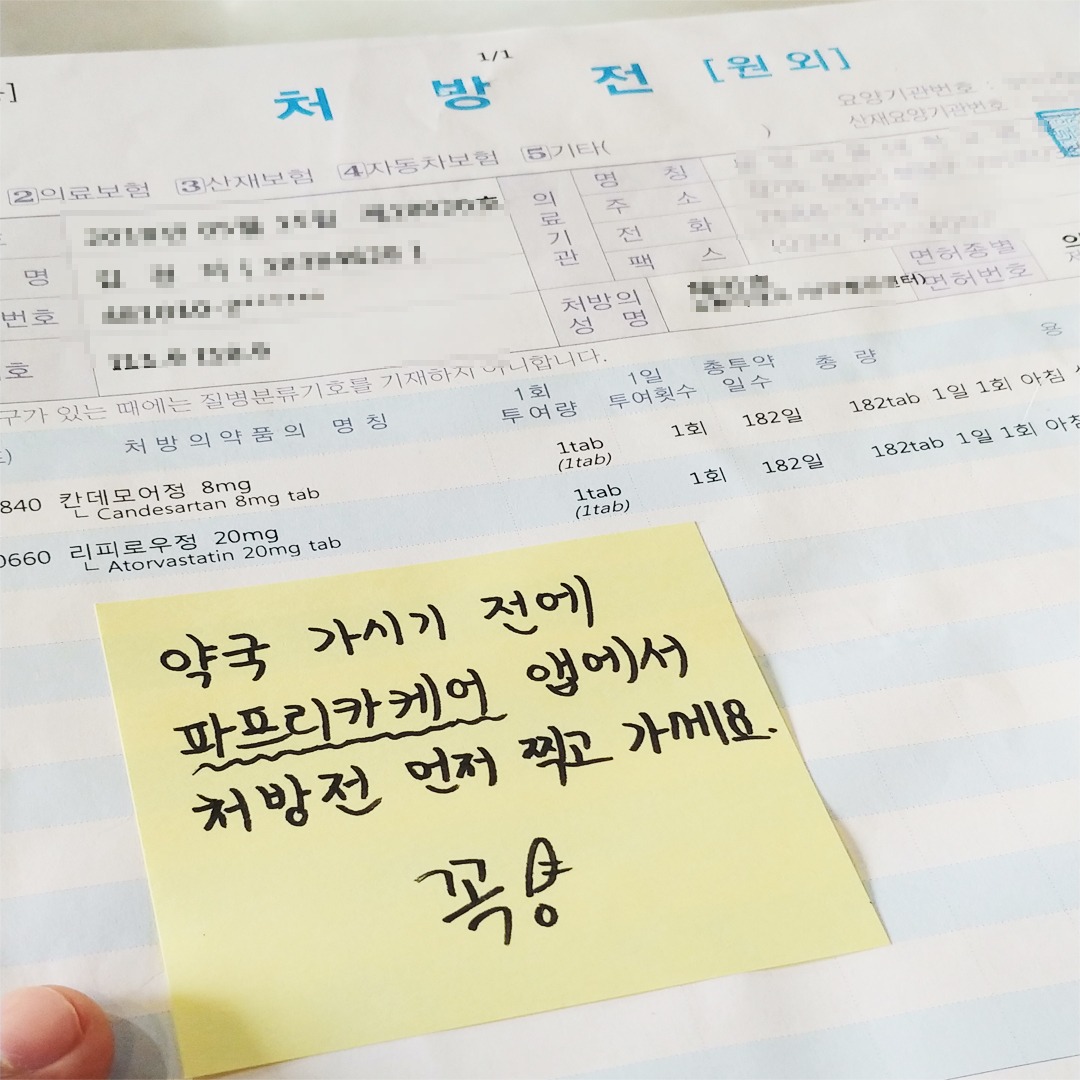 1/1
처 방 전 [원 외]
요양기관번호 :
산재요양기관번호
2의료보험 3산재보험 4자동차보험 5기타( )
의료기관
명 칭
주 소
전 화
팩 스
명
번호
호
처방의
성 명
센터)
면허종별
면허번호
구가 있는 때에는 질병분류기호를 기재하지 아니합니다.
처 방 의 약 품 의 명 칭
1회
투여량
1일
투여횟수
총투약
일수
총 량
용
840 칸데모어정 8mg 1tab 1회 182일 182tab 1일 1회 아침
ㄴ Candesartan 8mg tab (1tab)
0660 리피로우정 20mg 1tab 1회 182일 182tab 1일 1회 아침
ㄴ Atorvastatin 20mg tab (1tab)
약국 가시기 전에
파프리카케어 앱에서
처방전 먼저 찍고 가세요.
꼭